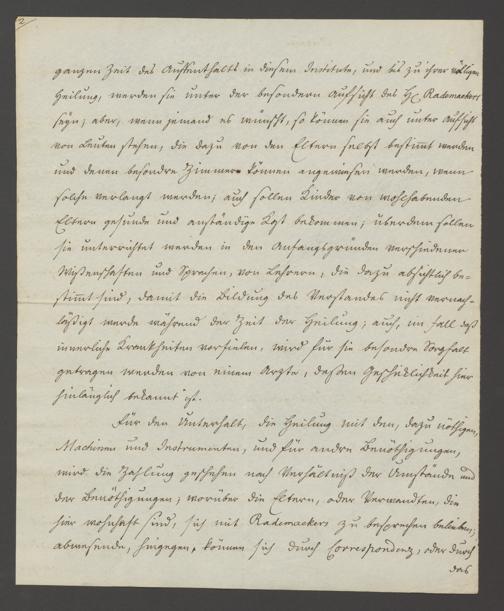 2/
ganzen Zeit des Aufenthalts in diesem Institute, und bis zu ihrer völligen
Heilung, werden sie unter der besondern Aufsicht des H. Rademackers
seyn; aber, wenn jemand es wünscht, so können sie auch unter Aufsicht
von Leuten stehen, die dazu von den Eltern selbst bestimmt werden
und denen besondre Zimmer können angewiesen werden, wenn
solche verlangt werden; auch sollen Kinder von wohlhabenden
Eltern gesunde und anständige Kost bekommen; überdem sollen
sie unterrichtet werden in den Anfangsgründen verschiedener
Wißenschaften und Sprachen, von Lehrern, die dazu absichtlich be-
stimt sind, damit die Bildung des Verstandes nicht vernach-
läßigt werde während der Zeit der Heilung; auch, im fall daß
innerliche Krankheiten vorfielen, wird für sie besondre Sorgfalt
getragen werden von einem Arzte, deßen Geschiklichkeit hier
hinlänglich bekannt ist.
Für den Unterhalt, die Heilung mit den, dazu nöthigen,
Machinen und Instrumenten, und für andre Benöthigungen,
wird die Zahlung geschehen nach Verhältniß der Umstände und
der Benöthigungen; worüber die Eltern, oder Verwandten, die
hier wohnhaft sind, sich mit Rademackers zu besprechen belieben;
abwesende, hingegen, können sich durch Correspondenz, oder durch
das